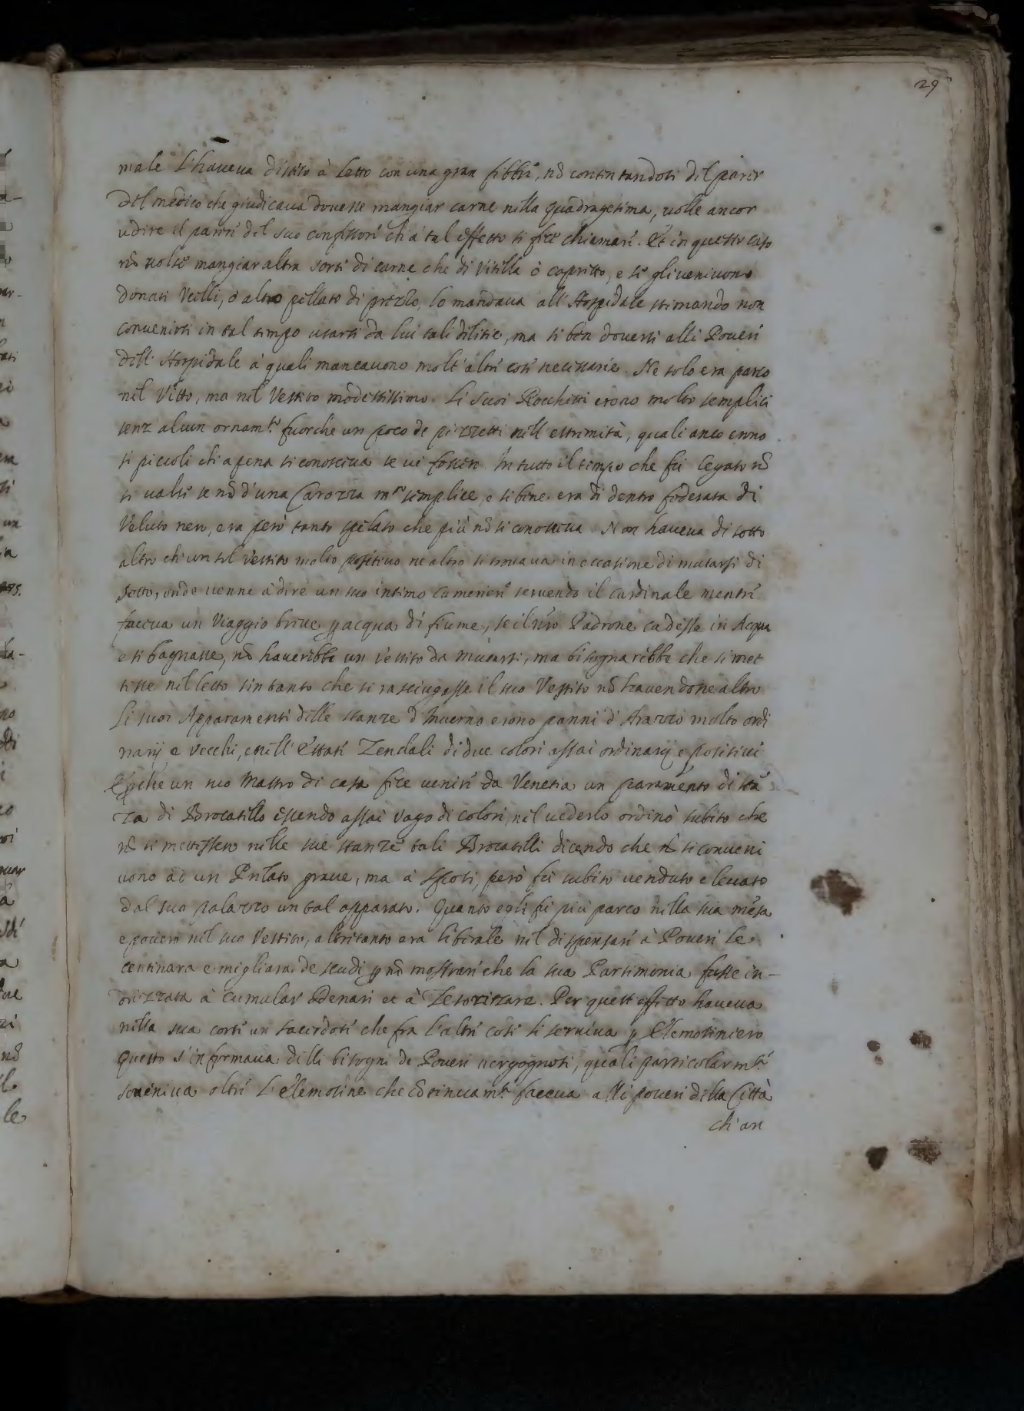 29
male l'haveua disteso à Letto con una gran febbre, nõ contentandosi del parer
del medico che giudicaua douesse mangiar carne nella Quadragesima, uolle ancor
udire il parere del suo confessore ch'à tal effetto si fece chiamare. Et in questo caso
nõ uolse mangiar altra sorte di carne che di Vitella ò capretto, e se gli ueniuono
donati Vcelli, ò altro pollaro di prezzo, lo mandaua all'Hospidale stimando non
conuenirsi in tal tempo usarsi da lui tali delitie, ma si ben douersi alli Poueri
dell'Hospidale à quali mancauono molt'altre cose necessarie. Ne solo era parco
nel Vitto, ma nel Vestito modestissimo. Li suoi Rocchetti erono molto semplici
senz'alcun ornam.to fuorche un poco de pizzetti nell'estremità, quali anco erano
si piccoli ch'apena si conosceua se ui fossero. In tutto il tempo che fù legato nõ
si ualse se nõ d'una Carozza m.to semplice, e sibene era di dentro foderata di
Veluto nero, era però tanto spelato che più nõ si conosceua. Non haueua di sotto
altro ch'un sol vestito molto positiuo ne altro si trouaua in occasione di mutarsi di
sotto, onde uenne à dire un suo intimo cameriere seruendo il cardinale mentre
faceua un Viaggio breue p acqua di fiume, se il nro Padrone cadesse in Acqua
e si bagnasse, nõ hauerebbe un Vestito da mutarsi, ma bisognarebbe che si met
tesse nel letto sin tanto che si rasciugasse il suo Vestito nõ hauendone altro
Li suoi Apparamenti delle stanze d'Inuerno erono panni d'Arazzo molto ordi
narij e vecchi, e nell'Estate Zendali di due colori assai ordinarij e positiui
che un suo Mastro di casa fece uenire da Venetia un paramento di stã
za di Brocatello essendo assai uago di colori, nel uederlo ordinò subito che
nõ si mettessero nelle sue stanze tali Brocatelli dicendo che nõ si conueni
uono ad un Prelato graue, ma à sposi, però fù subito uenduto e leuato
dal suo palazzo un tal apparato. Quanto egli fù più parco nella sua mesa
e pouero nel suo Vestito, altretanto era liberale nel dispensare à Poueri le
centinara e migliara de scudi p nõ mostrare che la sua Parsimonia fusse in-
drizzata à cumular Denari et à Tesorizzare. Per quest'effetto haueua
nella sua corte un sacerdote che fra l'altre cose li seruiua p Elemosiniero
Questo s'informaua delli bisogni de Poueri uergognosi, quali particolarm.te
soueniua oltre l'elemosine che cõtinuam.te faceua alli poueri della Città
ch'an